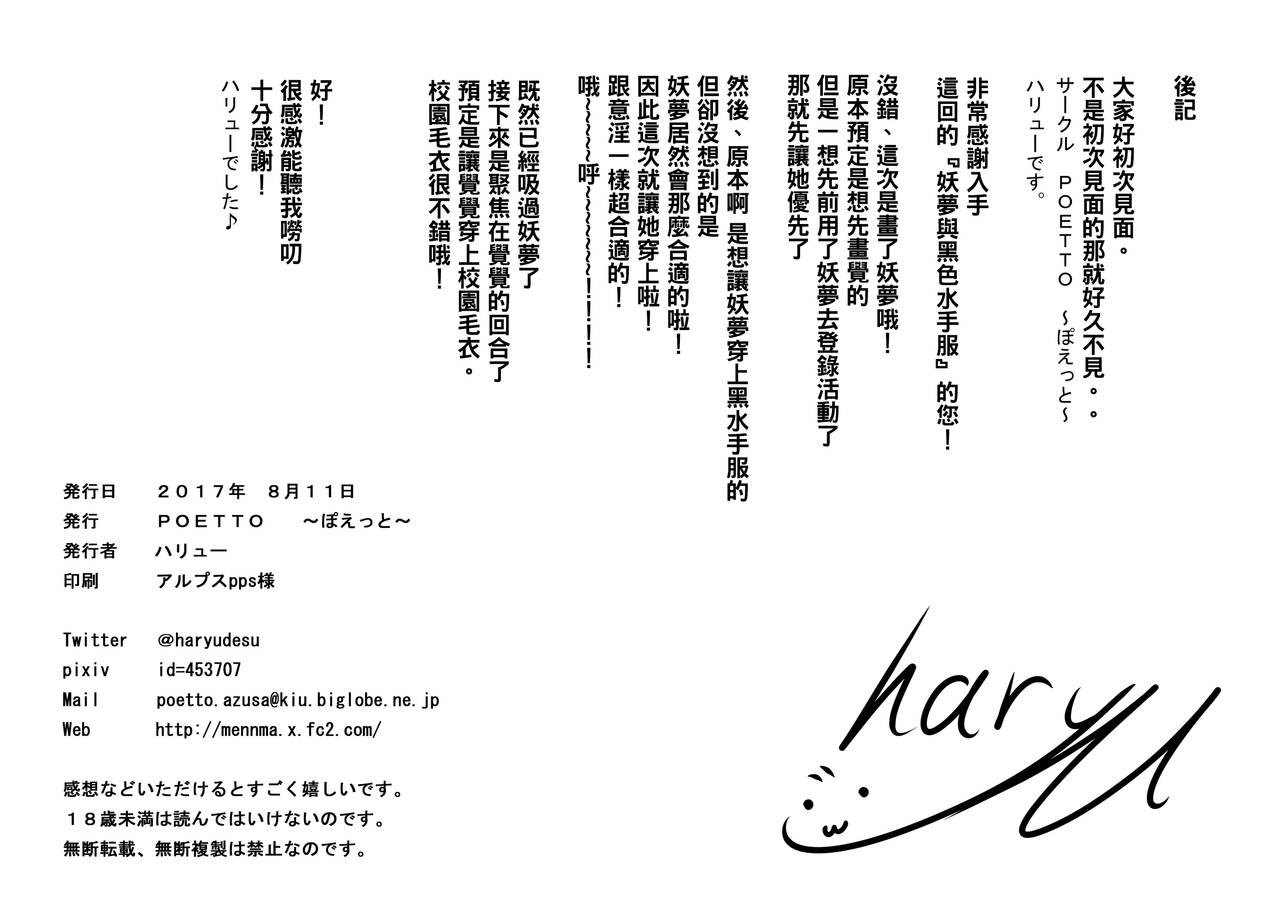 後記
大家好初次見面。
不是初次見面的那就好久不見。。
サークル　ＰＯＥＴＴＯ　～ぽえっと～
ハリューです。
非常感謝入手
這回的『妖夢與黑色水手服』的您！
沒錯、這次是畫了妖夢哦！
原本預定是想先畫覺的
但是一想先前用了妖夢去登錄活動了
那就先讓她優先了
然後、原本啊 是想讓妖夢穿上黑水手服的
但卻沒想到的是
妖夢居然會那麼合適的啦！
因此這次就讓她穿上啦！
跟意淫一樣超合適的！
哦～～～～呼～～～～～！！！！
既然已經吸過妖夢了
接下來是聚焦在覺覺的回合了
預定是讓覺覺穿上校園毛衣。
校園毛衣很不錯哦！
好！
很感激能聽我嘮叨
十分感謝！
ハリューでした♪
発行日　２０１７年　８月１１日
発行　ＰＯＥＴＴＯ　～ぽえっと～
発行者　ハリュー
印刷　アルプスpps様
Twitter　＠haryudesu
pixiv　id=453707
Mail　poetto.azusa@kiu.biglobe.ne.jp
Web　http://mennma.x.fc2.com/
感想などいただけるとすごく嬉しいです。
１８歳未満は読んではいけないのです。
無断転載、無断複製は禁止なのです。
haryu